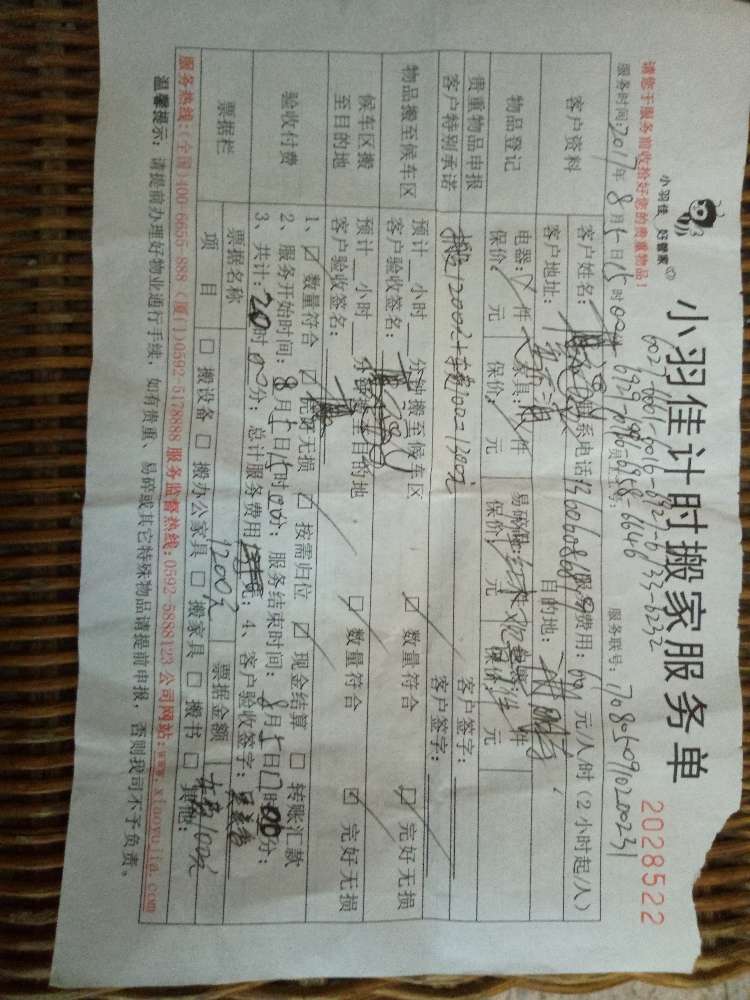 小羽佳 好管家
小羽佳计时搬家服务单
2028522
6027-6001-6016-6927-6733-6232
6929-6986-6958-6646
请您于服务前收拾好您的贵重物品!
服务时间:2017年8月5日15时00分
服务联号:708050910200231
客户资料
客户姓名:
联系电话:
服务费用:
元/人/时(2小时起/人)
客户地址:
目的地:
物品登记
电器: 件
家具: 件
易碎物: 件
件
保价: 元
保价: 元
保价: 元
保价: 元
贵重物品申报
客户签字:
客户特别承诺
搬运1200元+车费100=1300元
客户签字:
物品搬至候车区
预计 小时 分钟搬至候车区
☑ 数量符合
☑ 完好无损
客户验收签名:
候车区搬至目的地
预计 小时 分钟搬至目的地
☑ 数量符合
☑ 完好无损
客户验收签名:
验收付费
1、☑ 数量符合 ☑ 完好无损 ☑ 按需归位 ☑ 现金结算 □ 转账汇款
2、服务开始时间:8月5日15时00分; 服务结束时间:8月5日17时00分;
3、共计: 2时00分; 总计服务费用 元; 4、客户验收签字:
票据栏
票据名称
1200元
票据金额
车费100元
项目
□ 搬设备 □ 搬办公家具 □ 搬家具 □ 搬书 □ 其他:
服务热线:(全国)400-6655-888 (厦门)0592-5178888 服务监督热线:0592-5888123 公司网站:www.xiaoyujia.com
温馨提示: 请提前办理好物业通行手续, 如有贵重、易碎或其它特殊物品请提前申报, 否则我司不予负责。